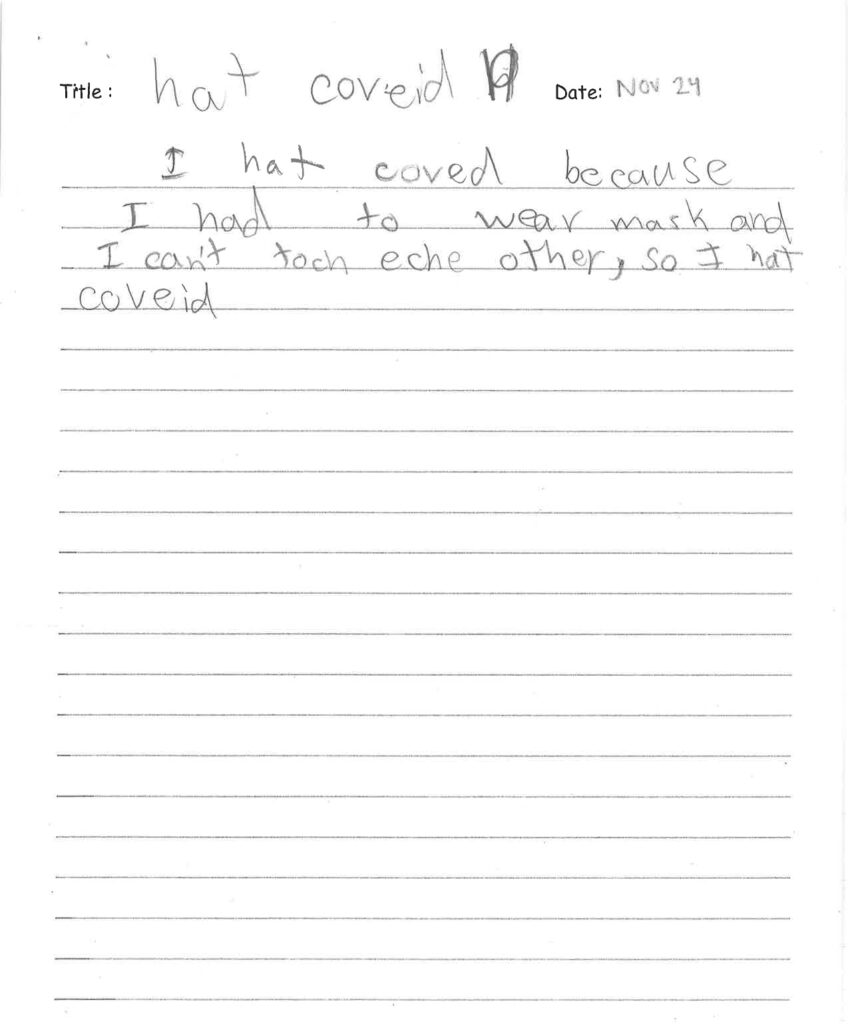 Title : hat coveid Date: Nov 24
I hat coved because
I had to wear mask and
I can't toch eche other, so I hat
coveid